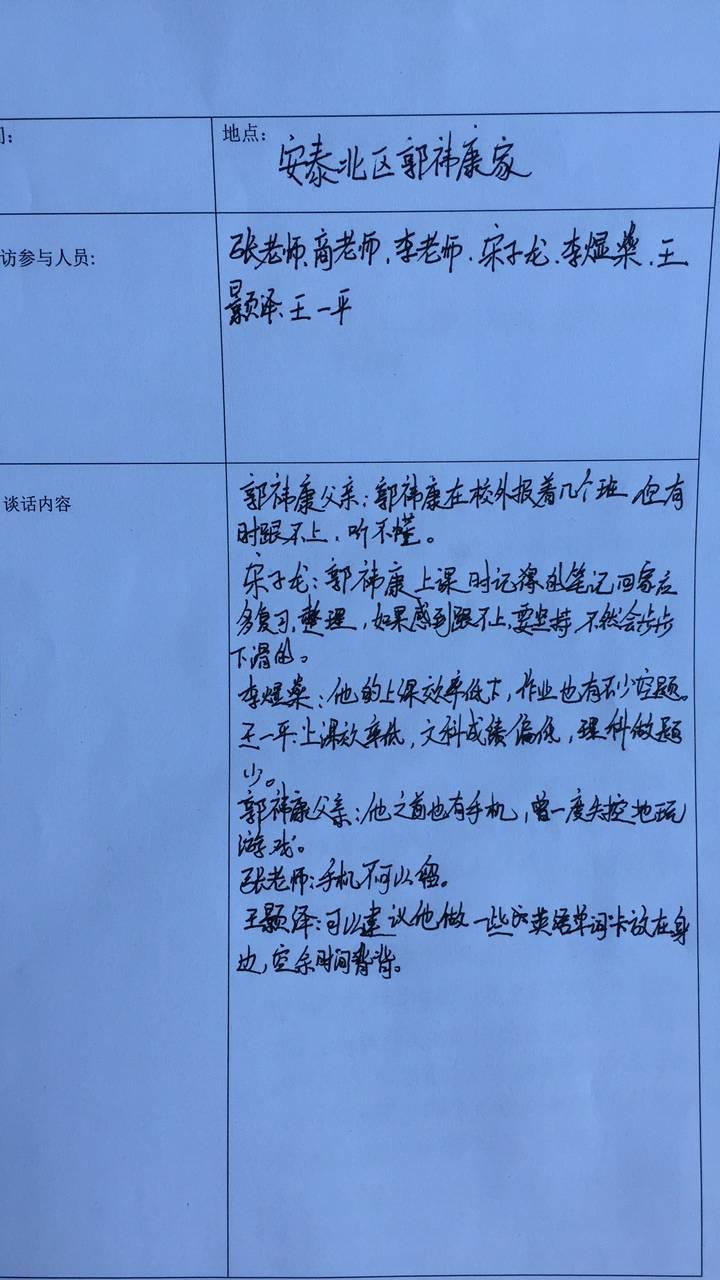 地点:
安泰北区郭祎康家
访参与人员:
张老师、商老师、李老师、宋子龙、李煜燊、王
颢泽、王一平
谈话内容
郭祎康父亲:郭祎康在校外报着几个班 但有
时跟不上,听不懂。
宋子龙:郭祎康上课时记得的笔记回家应
多复习,整理,如果感到跟不上,要坚持 不然会步步
下滑的。
李煜燊:他的上课效率低下,作业也有不少空题。
王一平:上课效率低,文科成绩偏低,理科做题
少。
郭祎康父亲:他之前也有手机,曾一度失控地玩
游戏。
张老师:手机不可以留。
王颢泽:可以建议他做一些小英语单词卡放在身
边,空余时间背背。